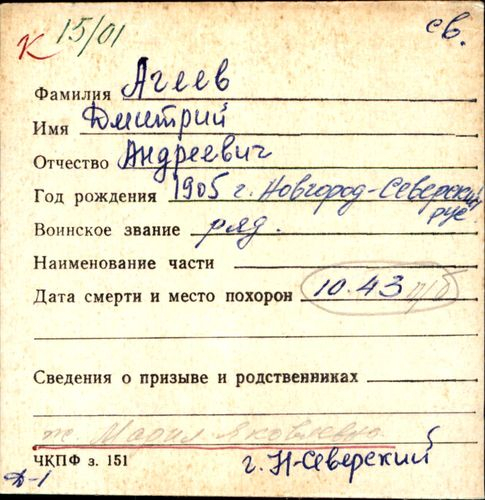 К 15/01
св.
Фамилия Агеев
Имя Дмитрий
Отчество Андреевич
Год рождения 1905 г. Новгород-Северский
рус
Воинское звание ряд.
Наименование части
Дата смерти и место похорон 10.43 п/б
Сведения о призыве и родственниках
ж Мария Яковлевна
ЧКПФ з. 151 г. Н-Северский
Д-1